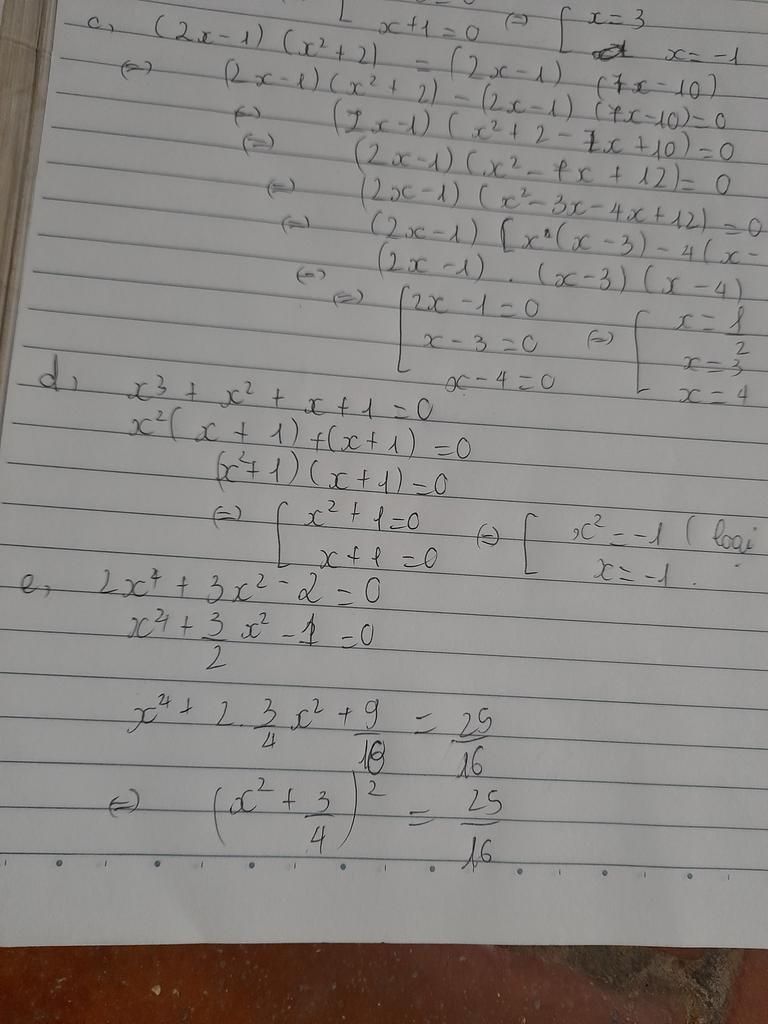 x+1=0 (=) [ x=3
x=-1
c, (2x-1) (x²+2) = (2x-1) (7x-10)
(=) (2x-1) (x²+2) - (2x-1) (7x-10)=0
(=) (2x-1) (x²+2-7x+10)=0
(=) (2x-1) (x²-7x+12)=0
(=) (2x-1) (x²-3x-4x+12)=0
(=) (2x-1) [x(x-3)-4(x-
(=) (2x-1).(x-3)(x-4)
(=) [ 2x-1=0 (=) [ x=1/2
x-3=0 x=3
x-4=0 x=4
d, x³+x²+x+1=0
x²(x+1)+(x+1)=0
(x²+1)(x+1)=0
(=) [ x²+1=0 (=) [ x²=-1 (loại
x+1=0 x=-1.
e, 2x⁴+3x²-2=0
x⁴+3/2 x²-1=0
x⁴+2.3/4 x²+9/16=25/16
(=) (x²+3/4)²=25/16